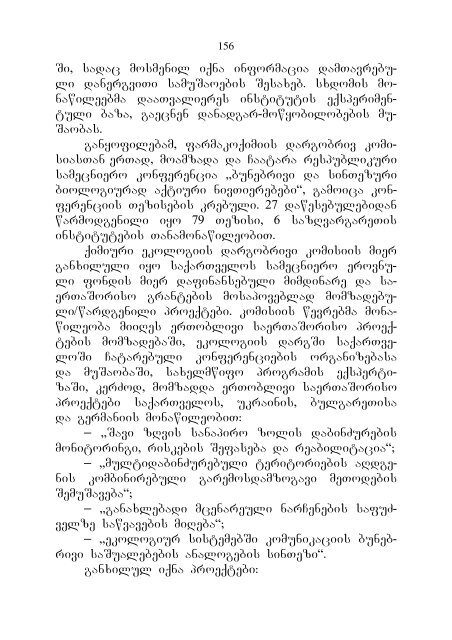 156
ში, სადაც მოსმენილ იქნა ინფორმაცია დამთავრებუ-
ლი დანერგვითი სამუშაოების შესახებ. სხდომის მო-
ნაწილეებმა დაათვალიერეს ინსტიტუტის ექსპერიმენ-
ტული ბაზა, გაეცნენ დანადგარ-მოწყობილობების მუ-
შაობას.
განყოფილებამ, ფარმაკოქიმიის დარგობრივ კომი-
სიასთან ერთად, მოამზადა და ჩაატარა რესპუბლიკური
სამეცნიერო კონფერენცია „ბუნებრივი და სინთეზური
ბიოლოგიურად აქტიური ნივთიერებები“, გამოიცა კონ-
ფერენციის თეზისების კრებული. 27 დაწესებულებიდან
წარმოდგენილი იყო 79 თეზისი, 6 საზღვარგარეთის
ინსტიტუტების თანამონაწილეობით.
ქიმიური ეკოლოგიის დარგობრივი კომისიის მიერ
განხილული იყო საქართველოს სამეცნიერო ეროვნუ-
ლი ფონდის მიერ დაფინანსებული მიმდინარე და სა-
ერთაშორისო გრანტების მოსაპოვებლად მომზადებუ-
ლი/წარდგენილი პროექტები. კომისიის წევრებმა მონა-
წილეობა მიიღეს ერთობლივი საერთაშორისო პროექ-
ტების მომზადებაში, ეკოლოგიის დარგში საქართვე-
ლოში ჩატარებული კონფერენციების ორგანიზებასა
და მუშაობაში, სახელმწიფო პროგრამის ექსპერტი-
ზაში, კერძოდ, მომზადდა ერთობლივი საერთაშორისო
პროექტები საქართველოს, უკრაინის, ბულგარეთისა
და გერმანიის მონაწილეობით:
– „შავი ზღვის სანაპირო ზოლის დაბინძურების
მონიტორინგი, რისკების შეფასება და რეაბილიტაცია“;
– „მულტიდაბინძურებული ტერიტორიების აღდგე-
ნის კომბინირებული გარემოსდამზოგავი მეთოდების
შემუშავება“;
– „განახლებადი მცენარეული ნარჩენების საფუძ-
ველზე საწვავების მიღება“;
– „ეკოლოგიურ სისტემებში კომუნიკაციის ბუნებ-
რივი საშუალებების ანალოგების სინთეზი“.
განხილულ იქნა პროექტები: